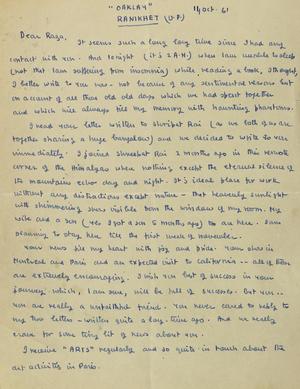 "OAKLAY"
RANIKHET (U.P.)
11 Oct. 61
Dear Raza,
It seems such a long long time since I had any
contact with you. And tonight (it is 2 A.M.) when I am unable to sleep
(not that I am suffering from insomnia) while reading a book, I thought,
I better write to you now - not because of any sentimental reasons but
on account of all those old old days which we had spent together
and which will always fill my memory with haunting phantoms.
I read your letter written to Shripat Rai (as we both of us are
together sharing a huge bungalow) and we decided to write to you
immediately. I joined Shreepat Rai 2 months ago in this remote
corner of the Himalayas where nothing except the eternal silence of
the mountains echo day and night. It's ideal place for work
without any distractions except nature - that heavenly sunlight
with shimmering snows visible from the window of my room. My
wife and a son (yes I got a son 5 months ago) too are here. I am
planning to stay here till the first week of november.
Your news fill my heart with joy and pride. Your shows in
Montreal and Paris and an expected visit to California - all of them
are extremely encouraging. I wish you lot of success in your
journey which, I am sure, will be full of successes. But you -
you are really a unfaithful friend. You never cared to reply to
my two letters - written quite a long time ago. And we really
crave for some tiny bit of news about you.
I receive "ARTS" regularly and so quite in touch about the
art activities in Paris.